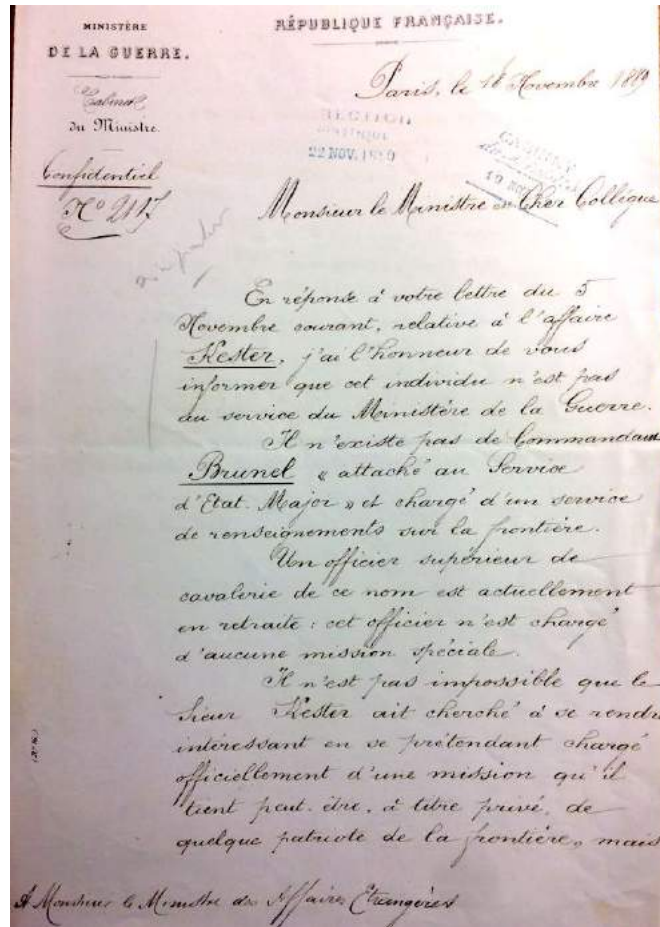 MINISTÈRE
DE LA GUERRE.
Cabinet
du Ministre.
Confidentiel
N° 2117
RÉPUBLIQUE FRANÇAISE.
Paris, le 18 Novembre 1889
SECTION
22 NOV.
CABINET
19 NOV
Monsieur le Ministre et Cher Collègue
En réponse à votre lettre du 5
Novembre courant, relative à l'affaire
Kester, j'ai l'honneur de vous
informer que cet individu n'est pas
au service du Ministère de la Guerre.
Il n'existe pas de Commandant
Brunel « attaché au Service
d'Etat-Major » et chargé d'un service
de renseignements sur la frontière.
Un officier supérieur de
cavalerie de ce nom est actuellement
en retraite : cet officier n'est chargé
d'aucune mission spéciale.
Il n'est pas impossible que le
Sieur Kester ait cherché à se rendre
intéressant en se prétendant chargé
officiellement d'une mission qu'il
tient peut-être, à titre privé, de
quelque patriote de la frontière, mais
A Monsieur le Ministre des Affaires Etrangères